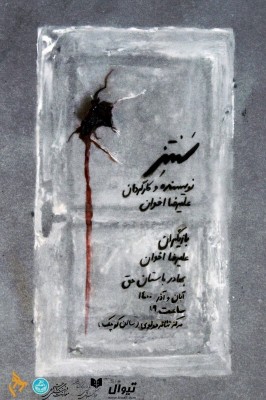 سنتز
نویسنده و کارگردان
علیرضا اخوان
بازیگران
علیرضا اخوان
بهادر باستان حق
آبان و آذر ۱۴۰۰
ساعت ۱۹
مرکز تئاتر مولوی (سالن کوچک)
تیوال